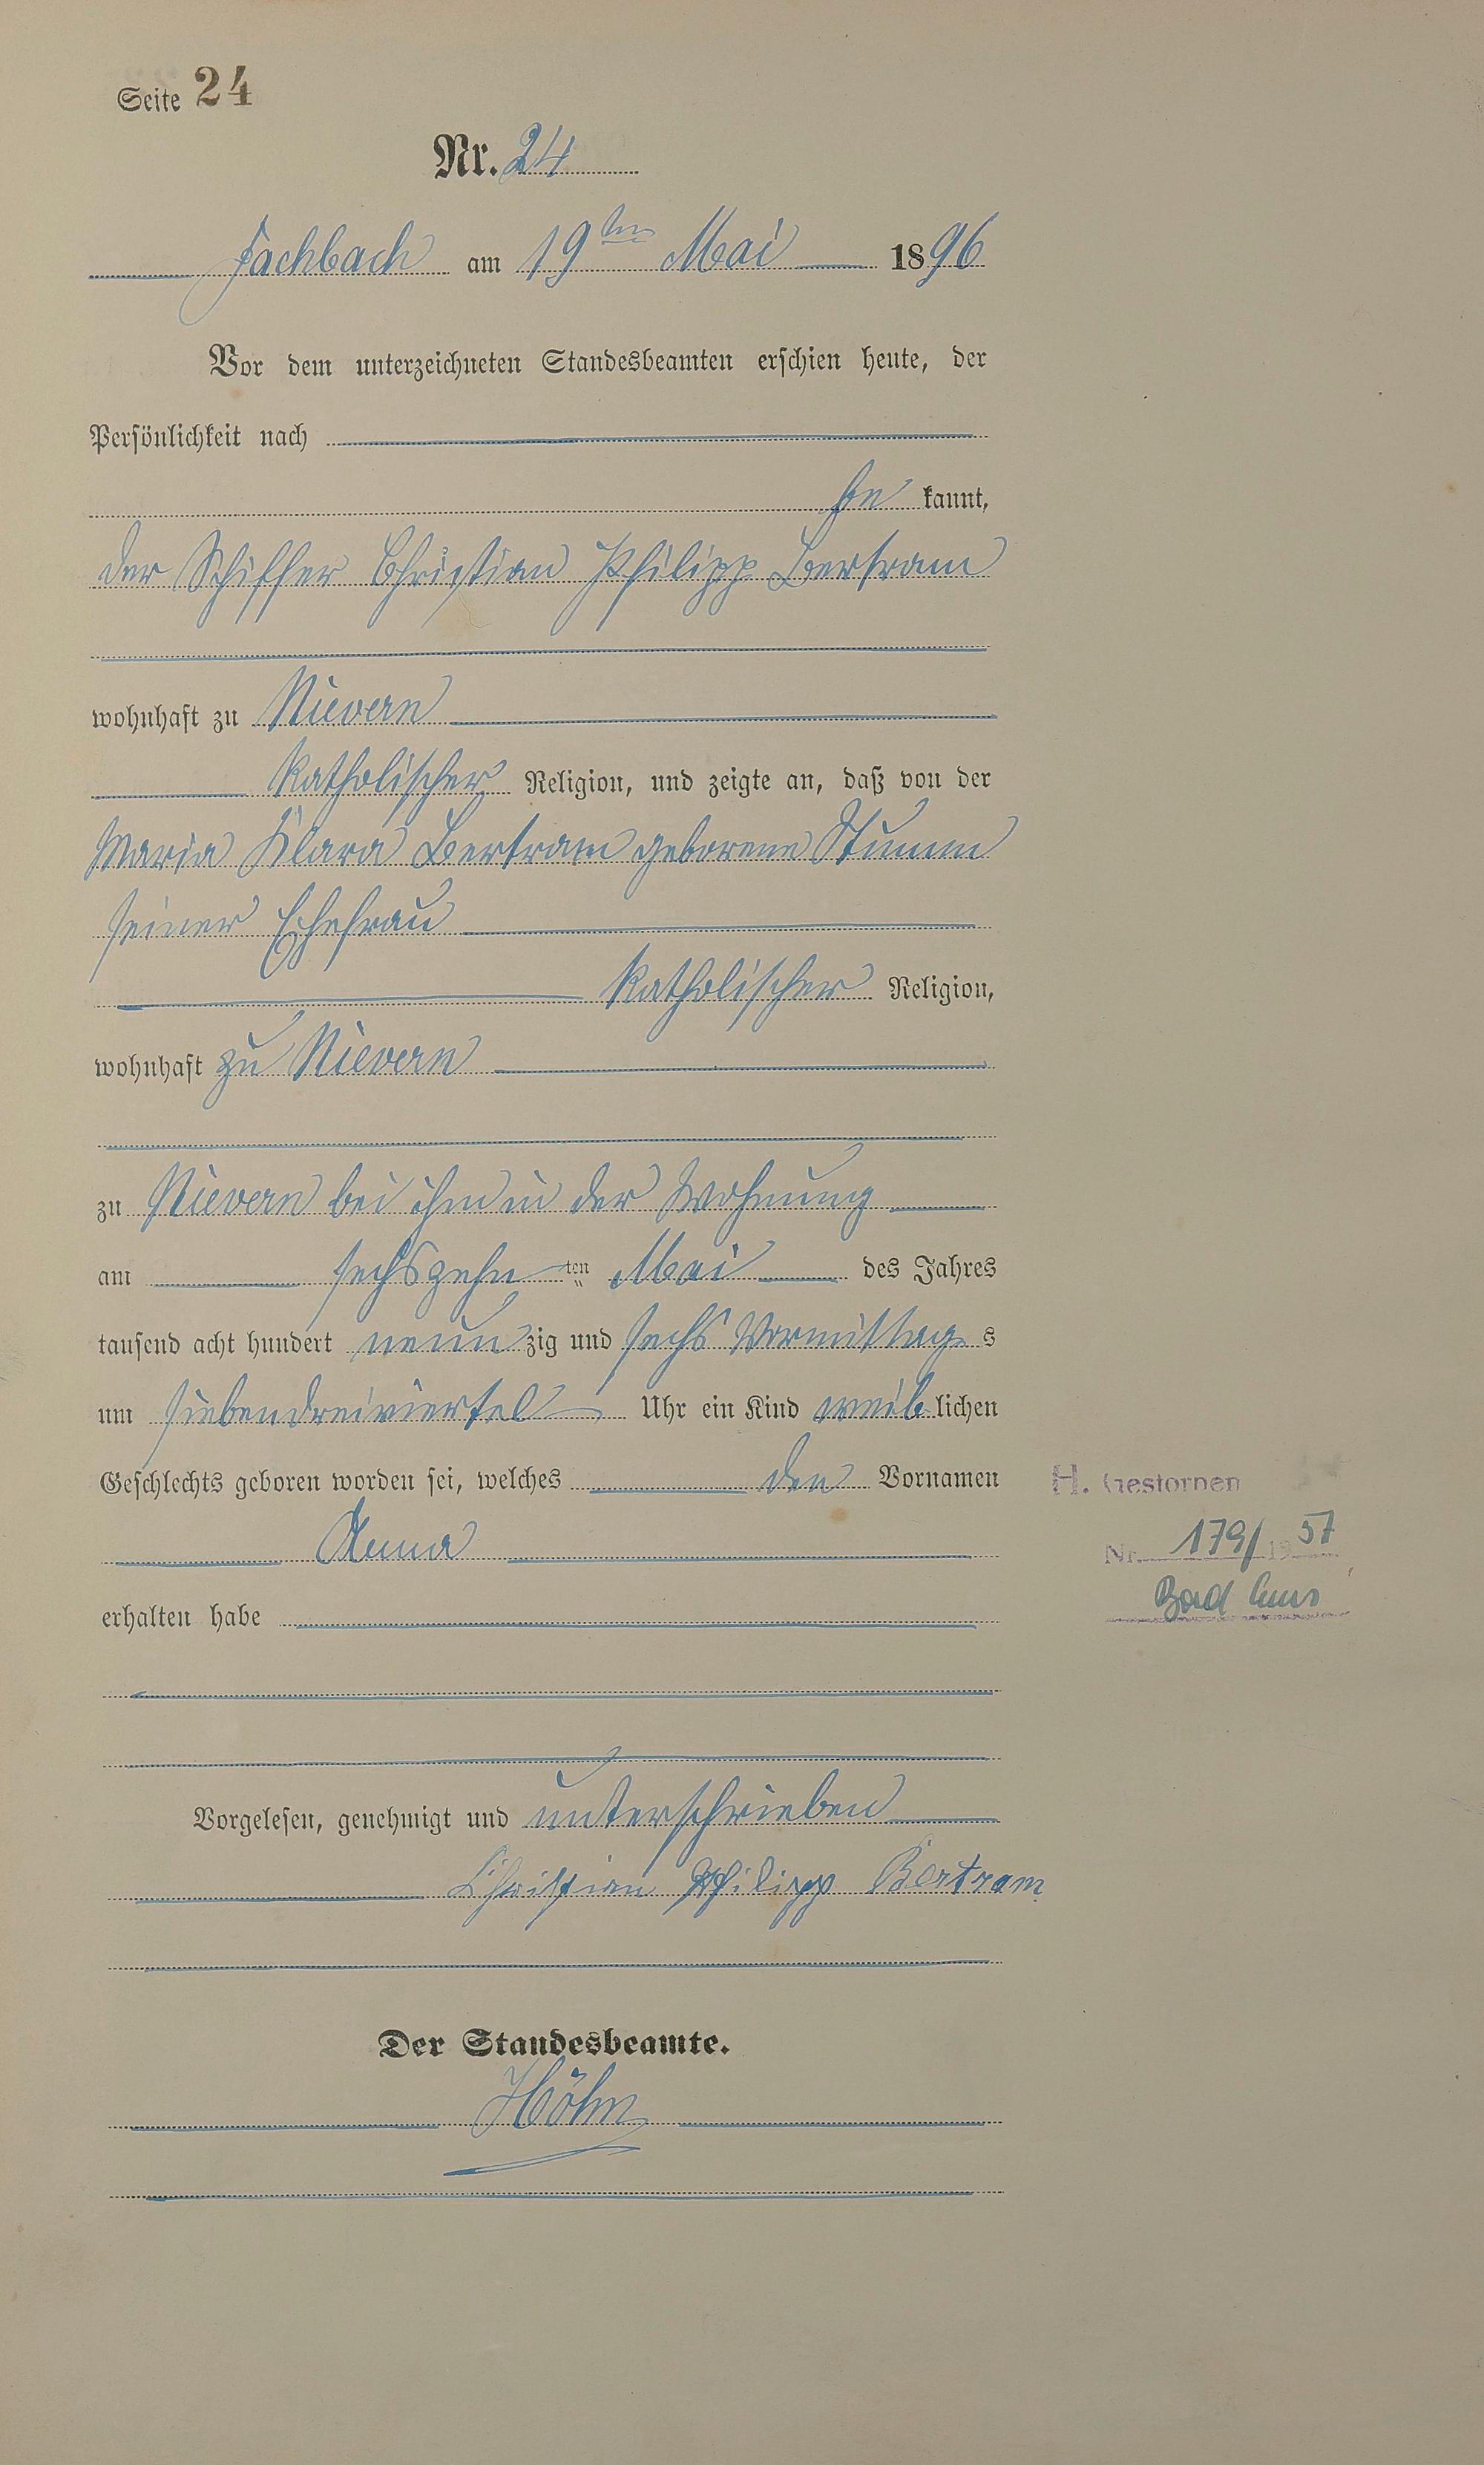 Seite 24
Nr. 24
Fachbach am 19ten Mai 1896
Vor dem unterzeichneten Standesbeamten erschien heute, der
Persönlichkeit nach
be kannt,
der Schiffer Christian Philipp Bertram
wohnhaft zu Nievern
katholischer Religion, und zeigte an, daß von der
Maria Klara Bertram geborene Stumm
seiner Ehefrau
katholischer Religion,
wohnhaft zu Nievern
zu Nievern bei ihm in der Wohnung
am sechszehn ten Mai des Jahres
tausend acht hundert neun zig und sechs Vormittag s
um siebendreiviertel Uhr ein Kind weib lichen
Geschlechts geboren worden sei, welches den Vornamen
H. Gestorben
Anna
Nr. 179/1957
erhalten habe
Bad Ems
Vorgelesen, genehmigt und unterschrieben
Christian Philipp Bertram
Der Standesbeamte.
Höhn